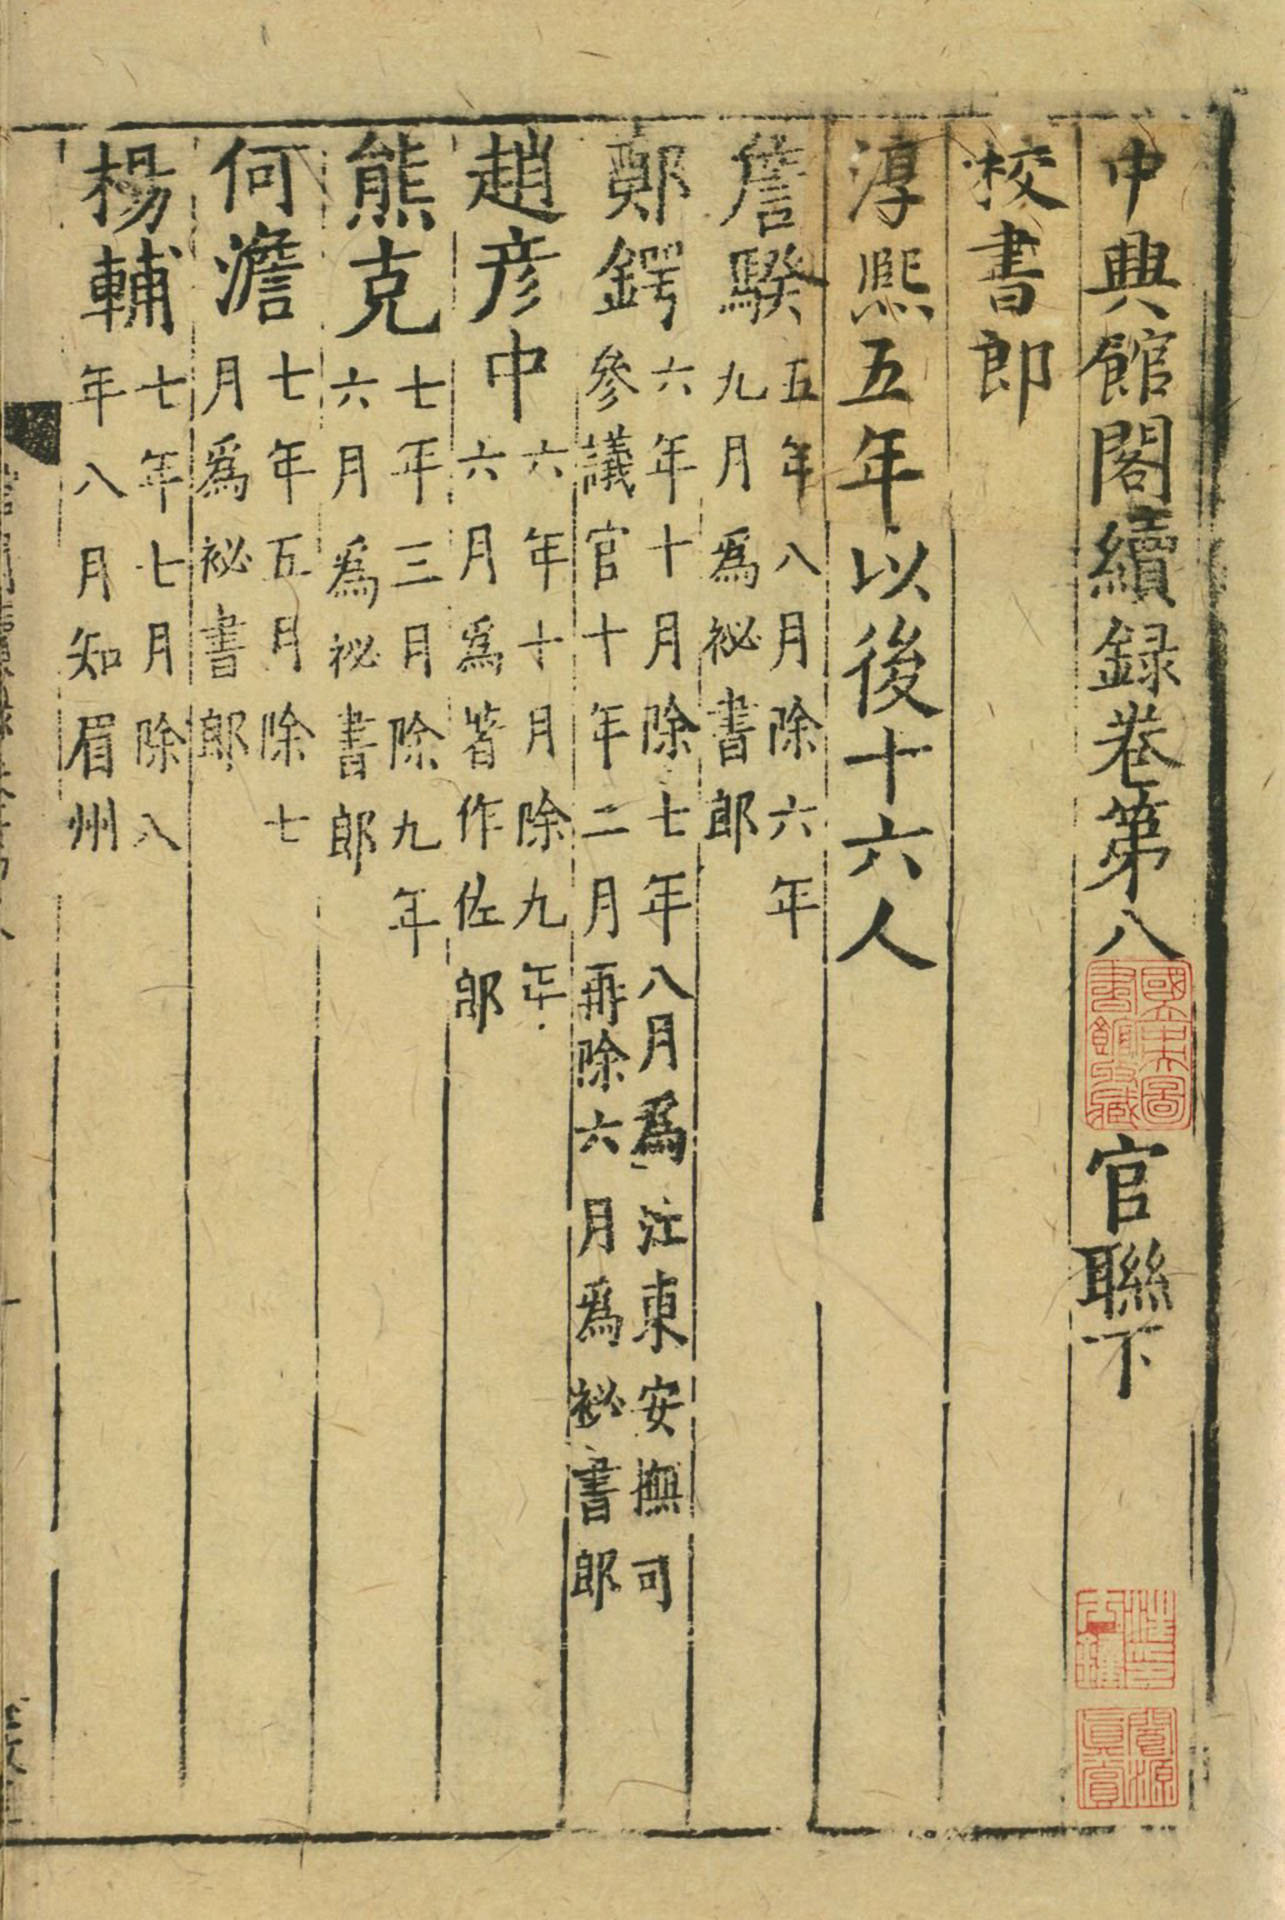 中興館閣續録卷第八 官聯下
校書郎
淳熙五年以後十六人
詹騤 五年八月除六年
九月爲祕書郎
鄭鍔 六年十月除七年八月爲江東安撫司
參議官十年二月再除六月爲祕書郎
趙彦中 六年十月除九年
六月爲著作佐郎
熊克 七年三月除九年
六月爲祕書郎
何澹 七年五月除七
月爲祕書郎
楊輔 七年七月除八
年八月知眉州
國立中央圖
書館收藏